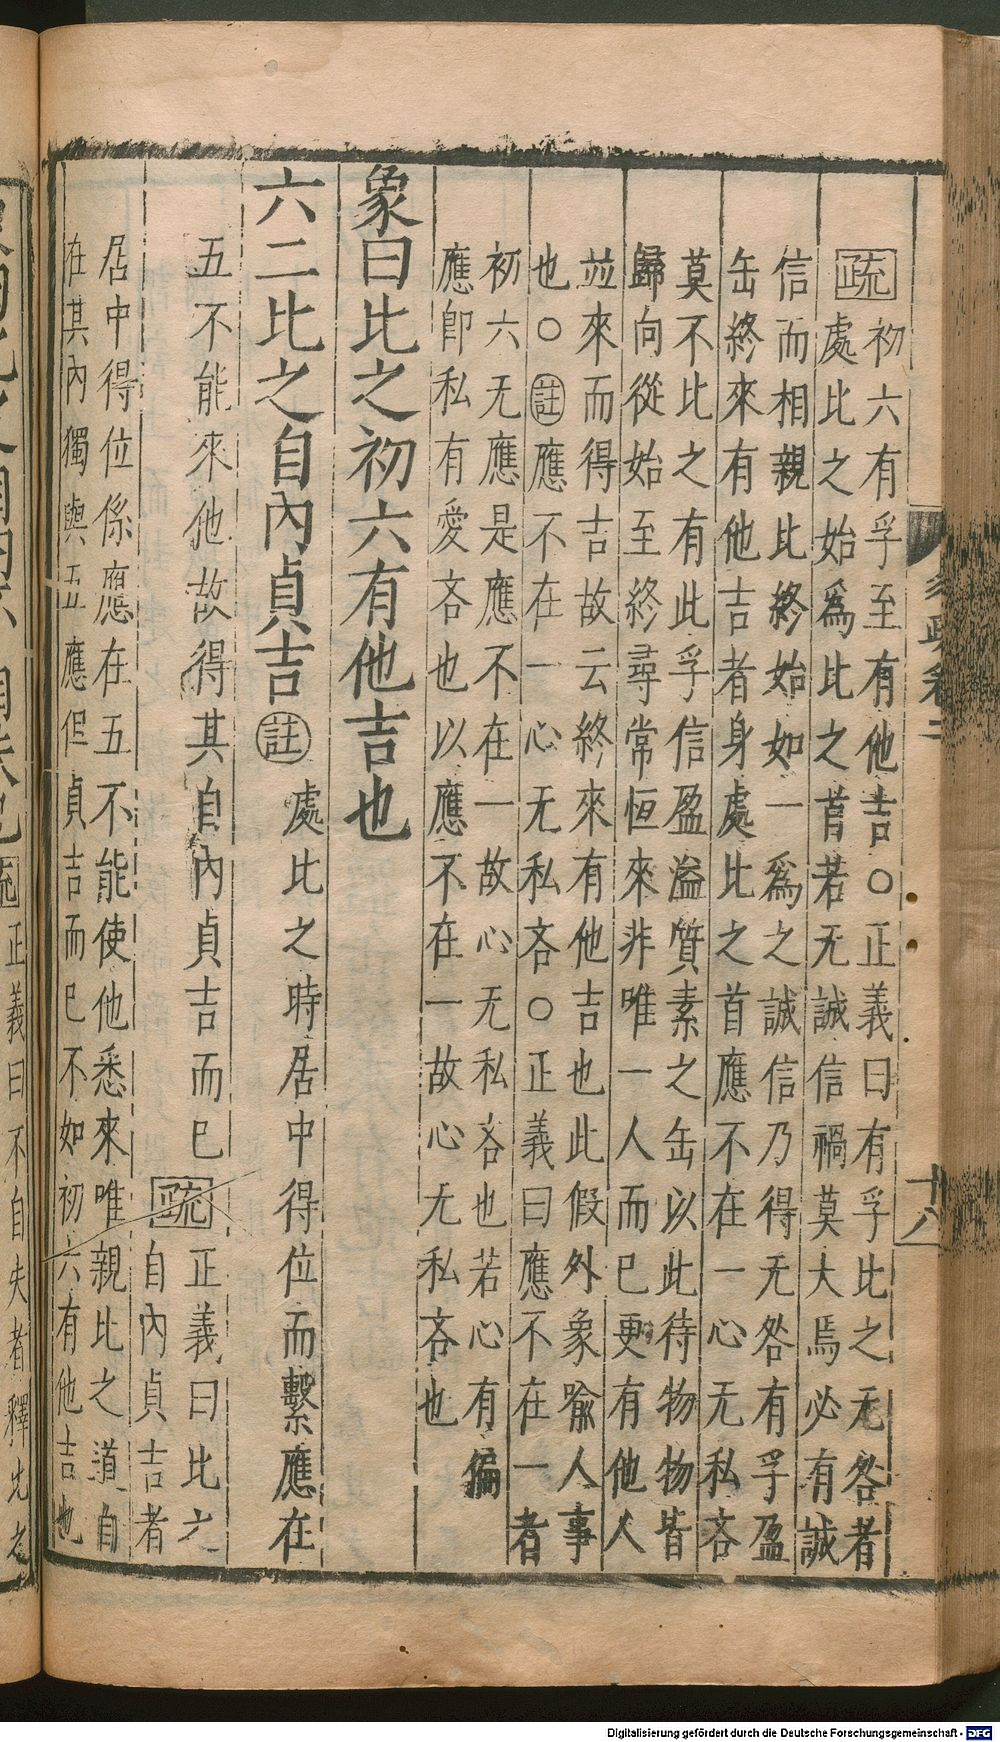 疏初六有孚至有他吉○正義曰有孚比之无咎者
處比之始爲比之首若无誠信禍莫大焉必有誠
信而相親比終始如一爲之誠信乃得无咎有孚盈
缶終來有他吉者身處比之首應不在一心无私吝
莫不比之有此孚信盈溢質素之缶以此待物物皆
歸向從始至終尋常恒來非唯一人而已更有他人
並來而得吉故云終來有他吉也此假外象喻人事
也○註應不在一心无私吝○正義曰應不在一者
初六无應是應不在一故心无私吝也若心有偏
應即私有愛吝也以應不在一故心无私吝也
象曰比之初六有他吉也
六二比之自內貞吉註處比之時居中得位而繫應在
五不能來他故得其自內貞吉而已疏正義曰比六
自內貞吉者
居中得位係應在五不能使他悉來唯親比之道自
在其內獨與五應但貞吉而已不如初六有他吉也
疏正義曰不自失者釋比之
十八
Digitalisierung gefördert durch die Deutsche Forschungsgemeinschaft - DFG